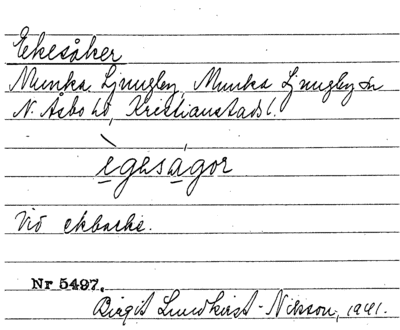 Ekesåker
Munka Ljungby, Munka Ljungby sn
N. Åsbo hd, Kristianstads l.
ègeságor
Vid ekbacke.
Nr 5497.
Birgit Lundkvist-Nilsson, 1941.